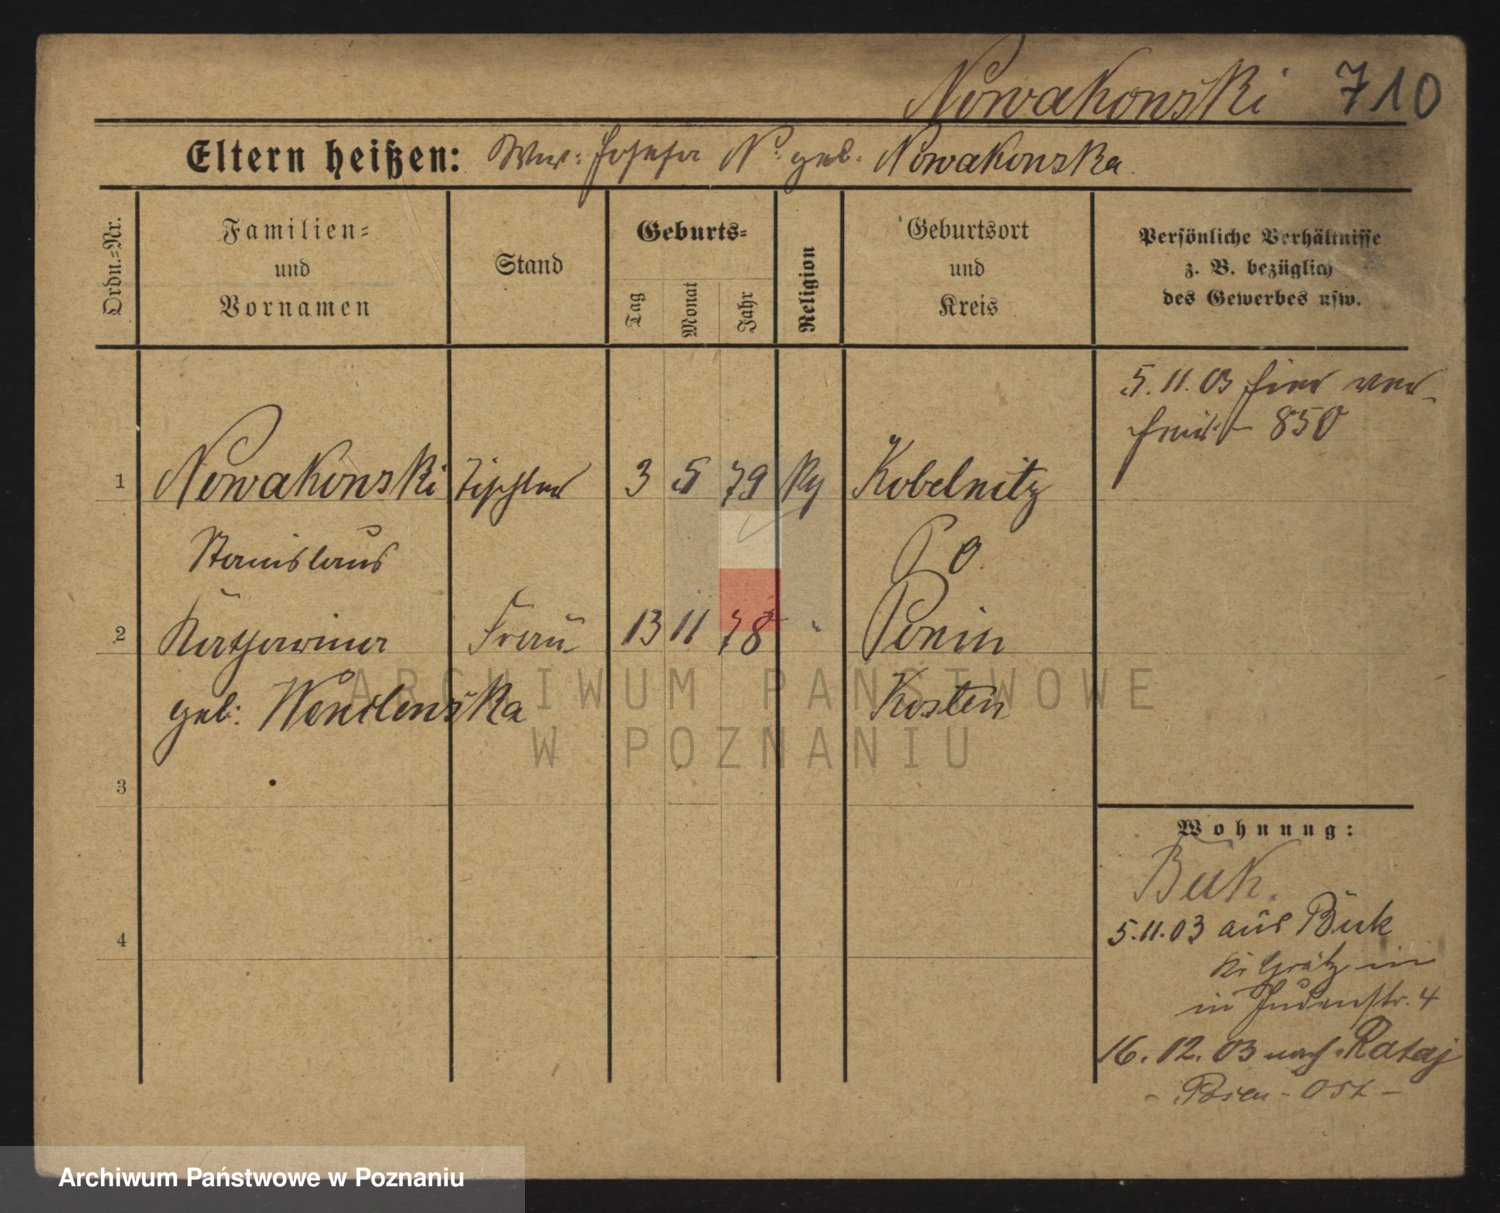 Nowakowski 710
Eltern heißen: Ww: Josefa N. geb. Nowakowska.
Ordn.-Nr.
Familien-
und
Vornamen
Stand
Geburts-
Tag
Monat
Jahr
Religion
Geburtsort
und
Kreis
Persönliche Verhältnisse
z. B. bezüglich
des Gewerbes usw.
5. 11. 03 hier ver-
850
1 Nowakowski Tischler 3 5 79 Kobelnitz
Stanislaus P O.
2 Katharina Frau 13 11 78 " Ponin
geb: Wendlenska Kosten
3
4
Wohnung:
Buk.
5.11.03 aus Buk
Kr Grätz
in Judenstr. 4
16. 12. 03 nach Rataj
- Posen-Ost -
ARCHIWUM PAŃSTWOWE
W POZNANIU
Archiwum Państwowe w Poznaniu